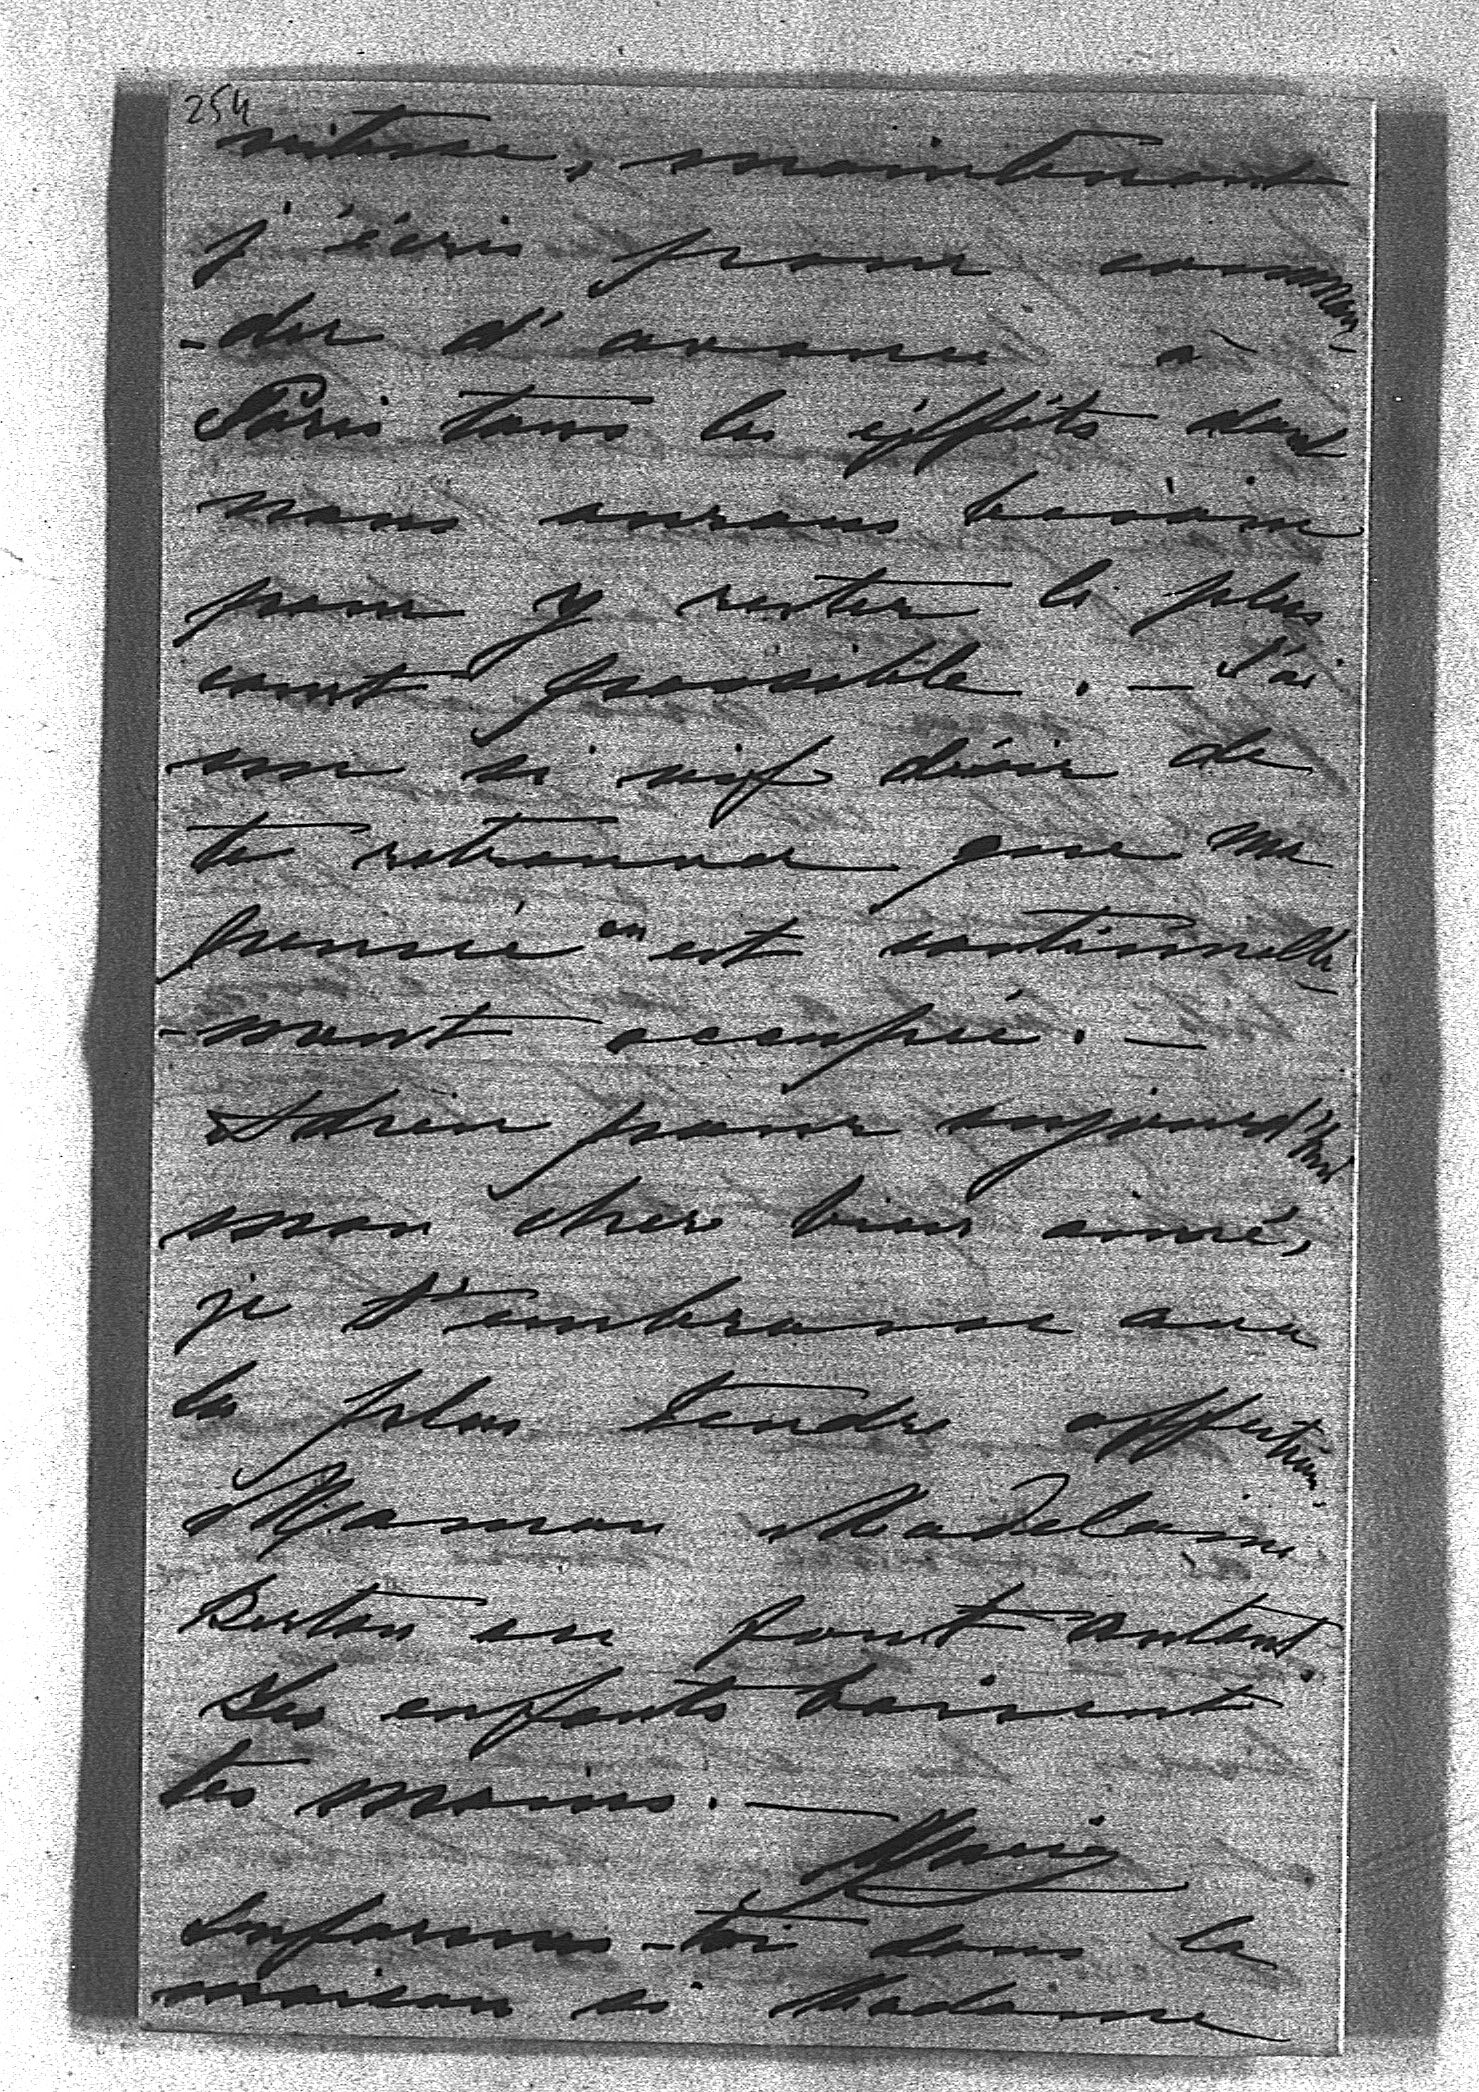 254
vitesse, maintenant
j'écris pour comman-
-der d'avance à
Paris tous les éffets dont
nous aurons besoin
pour y rester le plus
court possible. — J'ai
un si vif désir de
te retrouver que ma
pensée en est continuelle-
-ment occupée. —
Adieu pour aujourd'hui
mon cher bien aimé,
je t'embrasse avec
la plus tendre affection.
Maman Madelaine
en font autant.
Les enfants baisent
tes mains. —
Marie
Informes-toi dans la
maison si Madame